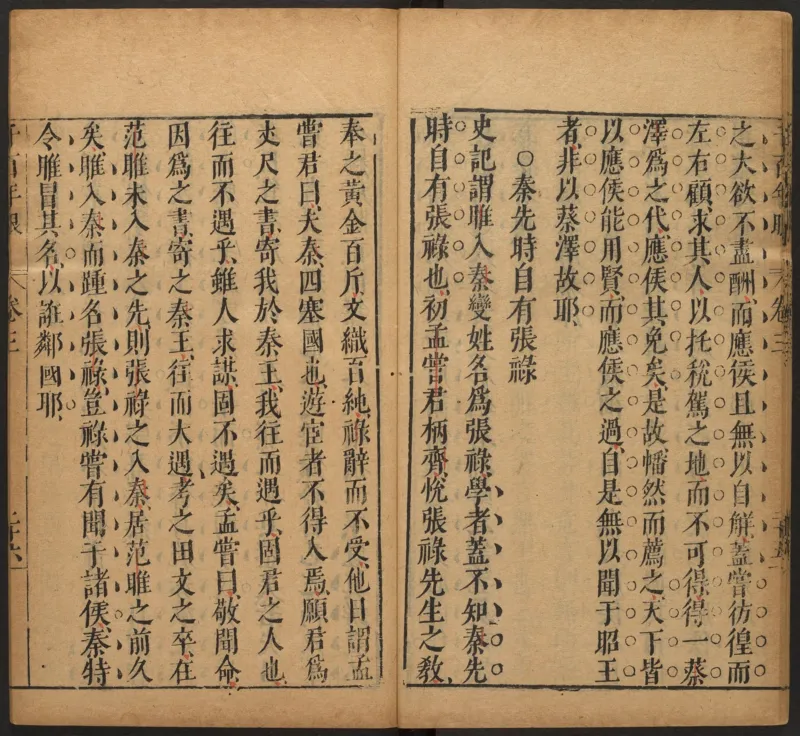 之大欲不盡酬而應侯且無以自解蓋嘗彷徨而
左右顧求其人以托稅駕之地而不可得得一蔡
澤爲之代應侯其免矣是故幡然而薦之天下皆
以應侯能用賢而應侯之過自是無以聞于昭王
者非以蔡澤故耶
○秦先時自有張祿
史記謂雎入秦變姓名爲張祿學者蓋不知秦先
時自有張祿也初孟嘗君柄齊悅張祿先生之敎
奉之黃金百斤文織百純祿辭而不受他日謂孟
嘗君曰夫秦四塞國也遊宦者不得入焉願君爲
丈尺之書寄我於秦王我往而遇乎固君之人也
往而不遇乎雖人求謀固不遇矣孟嘗曰敬聞命
因爲之書寄之秦王往而大遇考之田文之卒在
范雎未入秦之先則張祿之入秦居范雎之前久
矣雎入秦而踵名張祿豈祿嘗有聞于諸侯秦特
令雎冒其名以誑鄰國耶
卷三